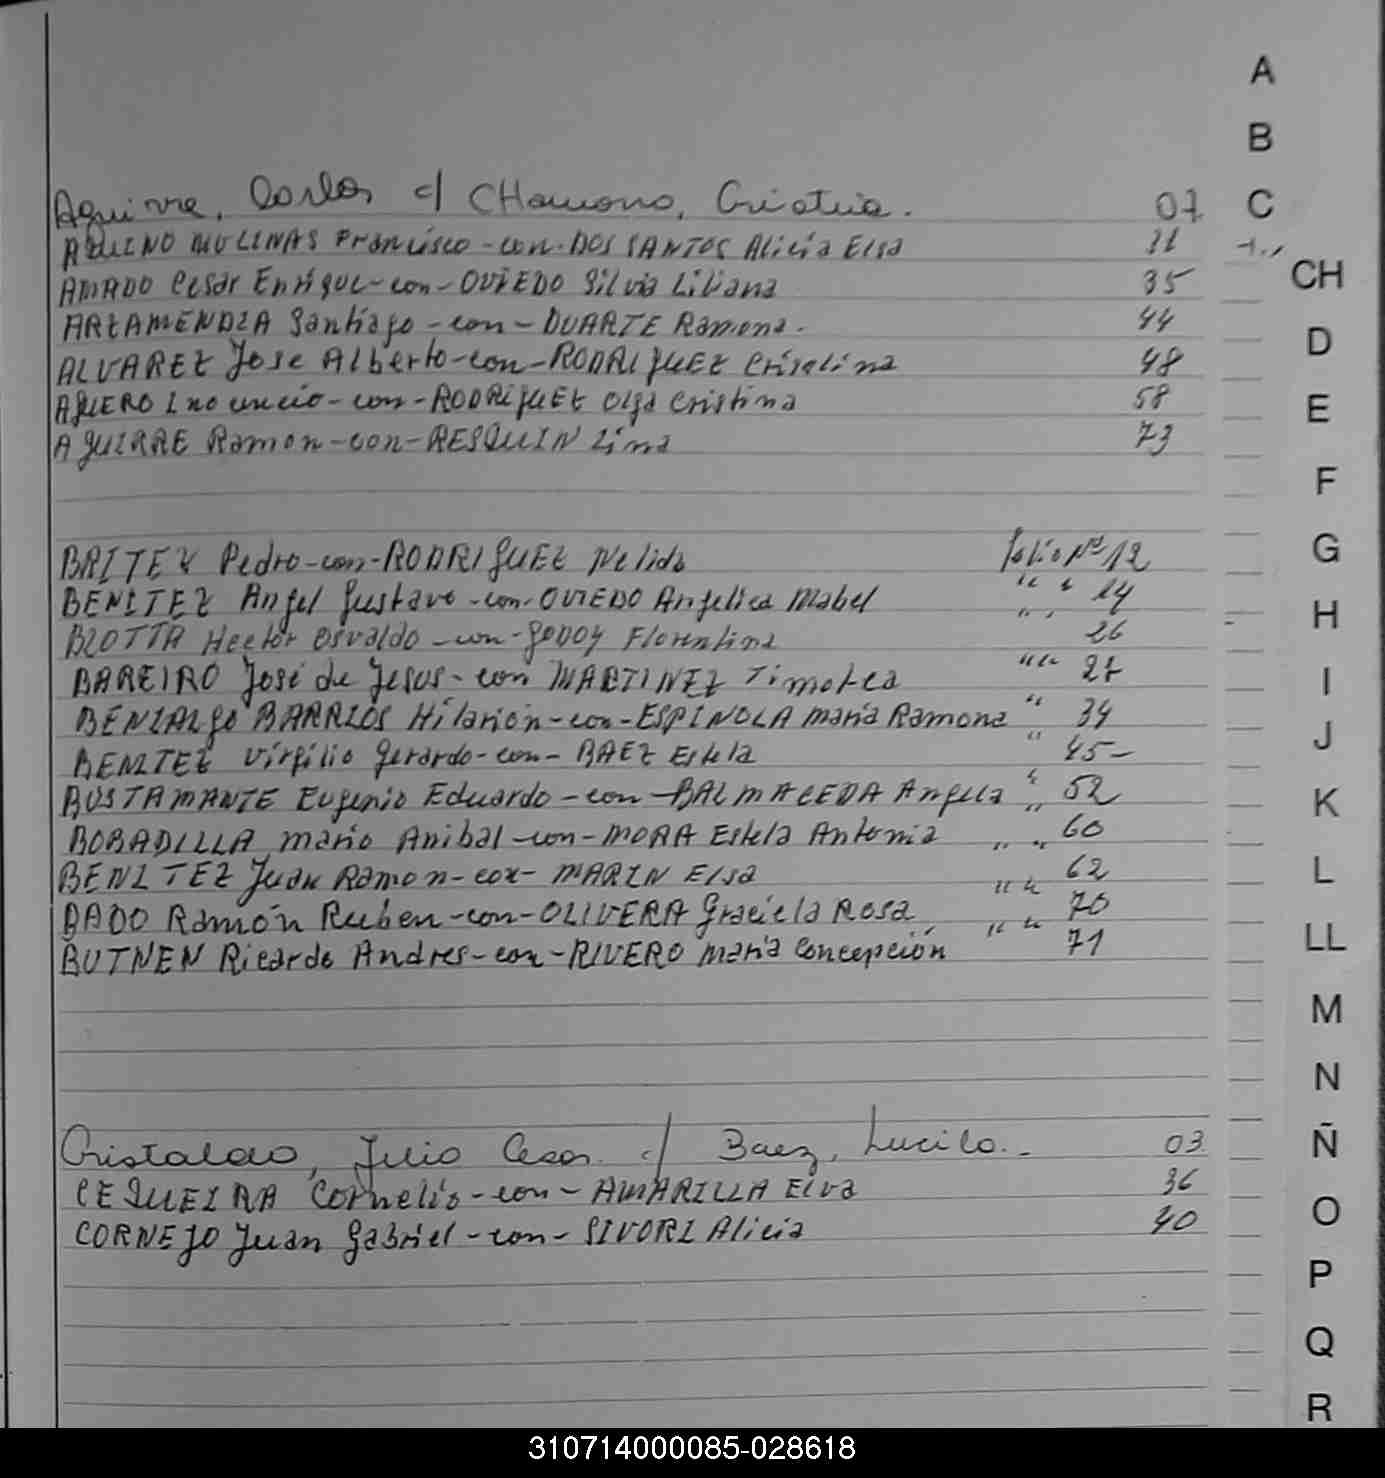 Aguirre, Carlos c/ CHamorro, Cristina. 07
AQUINO MOLINAS Francisco-con-DOS SANTOS Alicia Elsa 31
AMADO Cesar Enrique-con-OVIEDO Silvia Liliana 35
ARTAMENDIA Santiago-con-DUARTE Ramona. 44
ALVAREZ Jose Alberto-con-RODRIGUEZ Criselina 48
AGUERO Inocencio-con-RODRIGUEZ Olga Cristina 58
AGUIRRE Ramon-con-RESQUIN Lina 73
BRITEZ Pedro-con-RODRIGUEZ Nelida folio Nº 12
BENITEZ Angel Gustavo-con-OVIEDO Angelica Mabel " " 14
BLOTTA Hector Osvaldo-con-GODOY Florentina " " 26
BAREIRO José de Jesus-con MARTINEZ Timotea " " 27
BENIALGO BARRIOS Hilarión-con-ESPINOLA Maria Ramona " 34
BENITEZ Virgilio Gerardo-con-BAEZ Estela " 45-
BUSTAMANTE Eugenio Eduardo-con-BALMACEDA Angela " 52
BOBADILLA Mario Anibal-con-MORA Estela Antonia " 60
BENITEZ Juan Ramon-con-MARIN Elsa " " 62
BADO Ramón Ruben-con-OLIVERA Graciela Rosa " " 70
BUTNEN Ricardo Andres-con-RIVERO Maria Concepción " " 71
Cristaldo, Julio Cesar c/ Baez, Lucila.. 03
CEQUEIRA Cornelio-con-AMARILLA Elva 36
CORNEJO Juan Gabriel-con-SIVORI Alicia 40
A
B
C
CH
D
E
F
G
H
I
J
K
L
LL
M
N
Ñ
O
P
Q
R
310714000085-028618